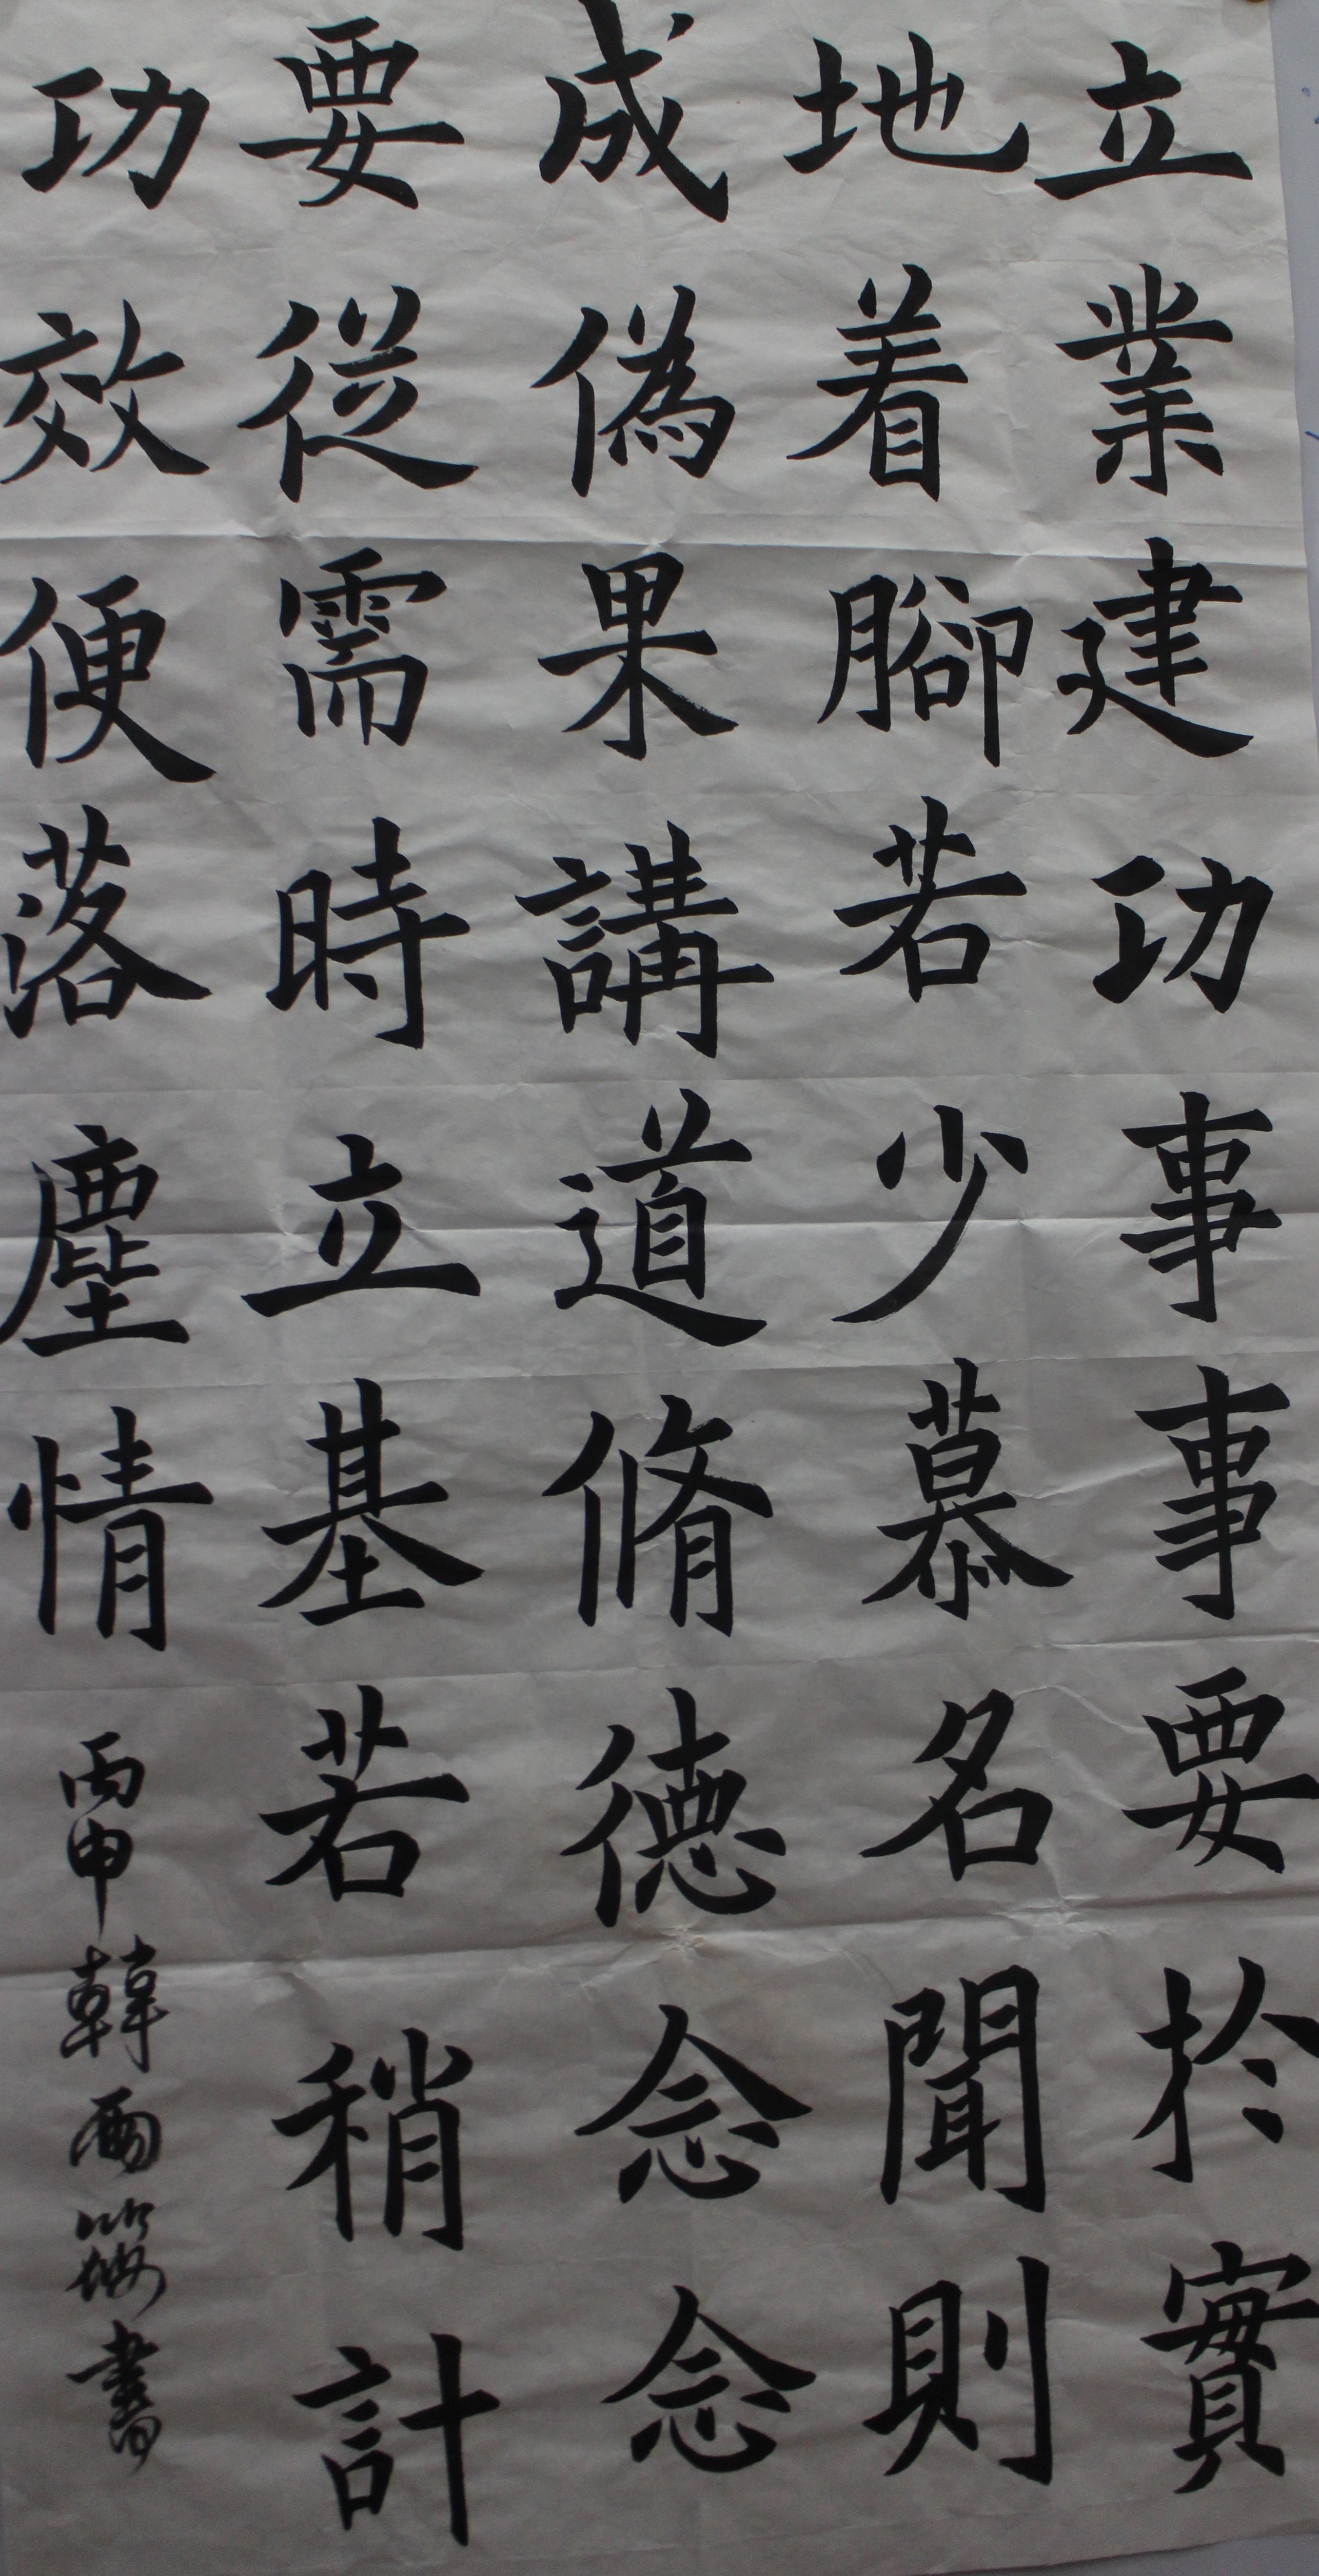 立業建功事事要於實
地着腳若少慕名聞則
成偽果講道脩德念念
要從需時立基若稍計
功效便落塵情
丙申韓雨筱書